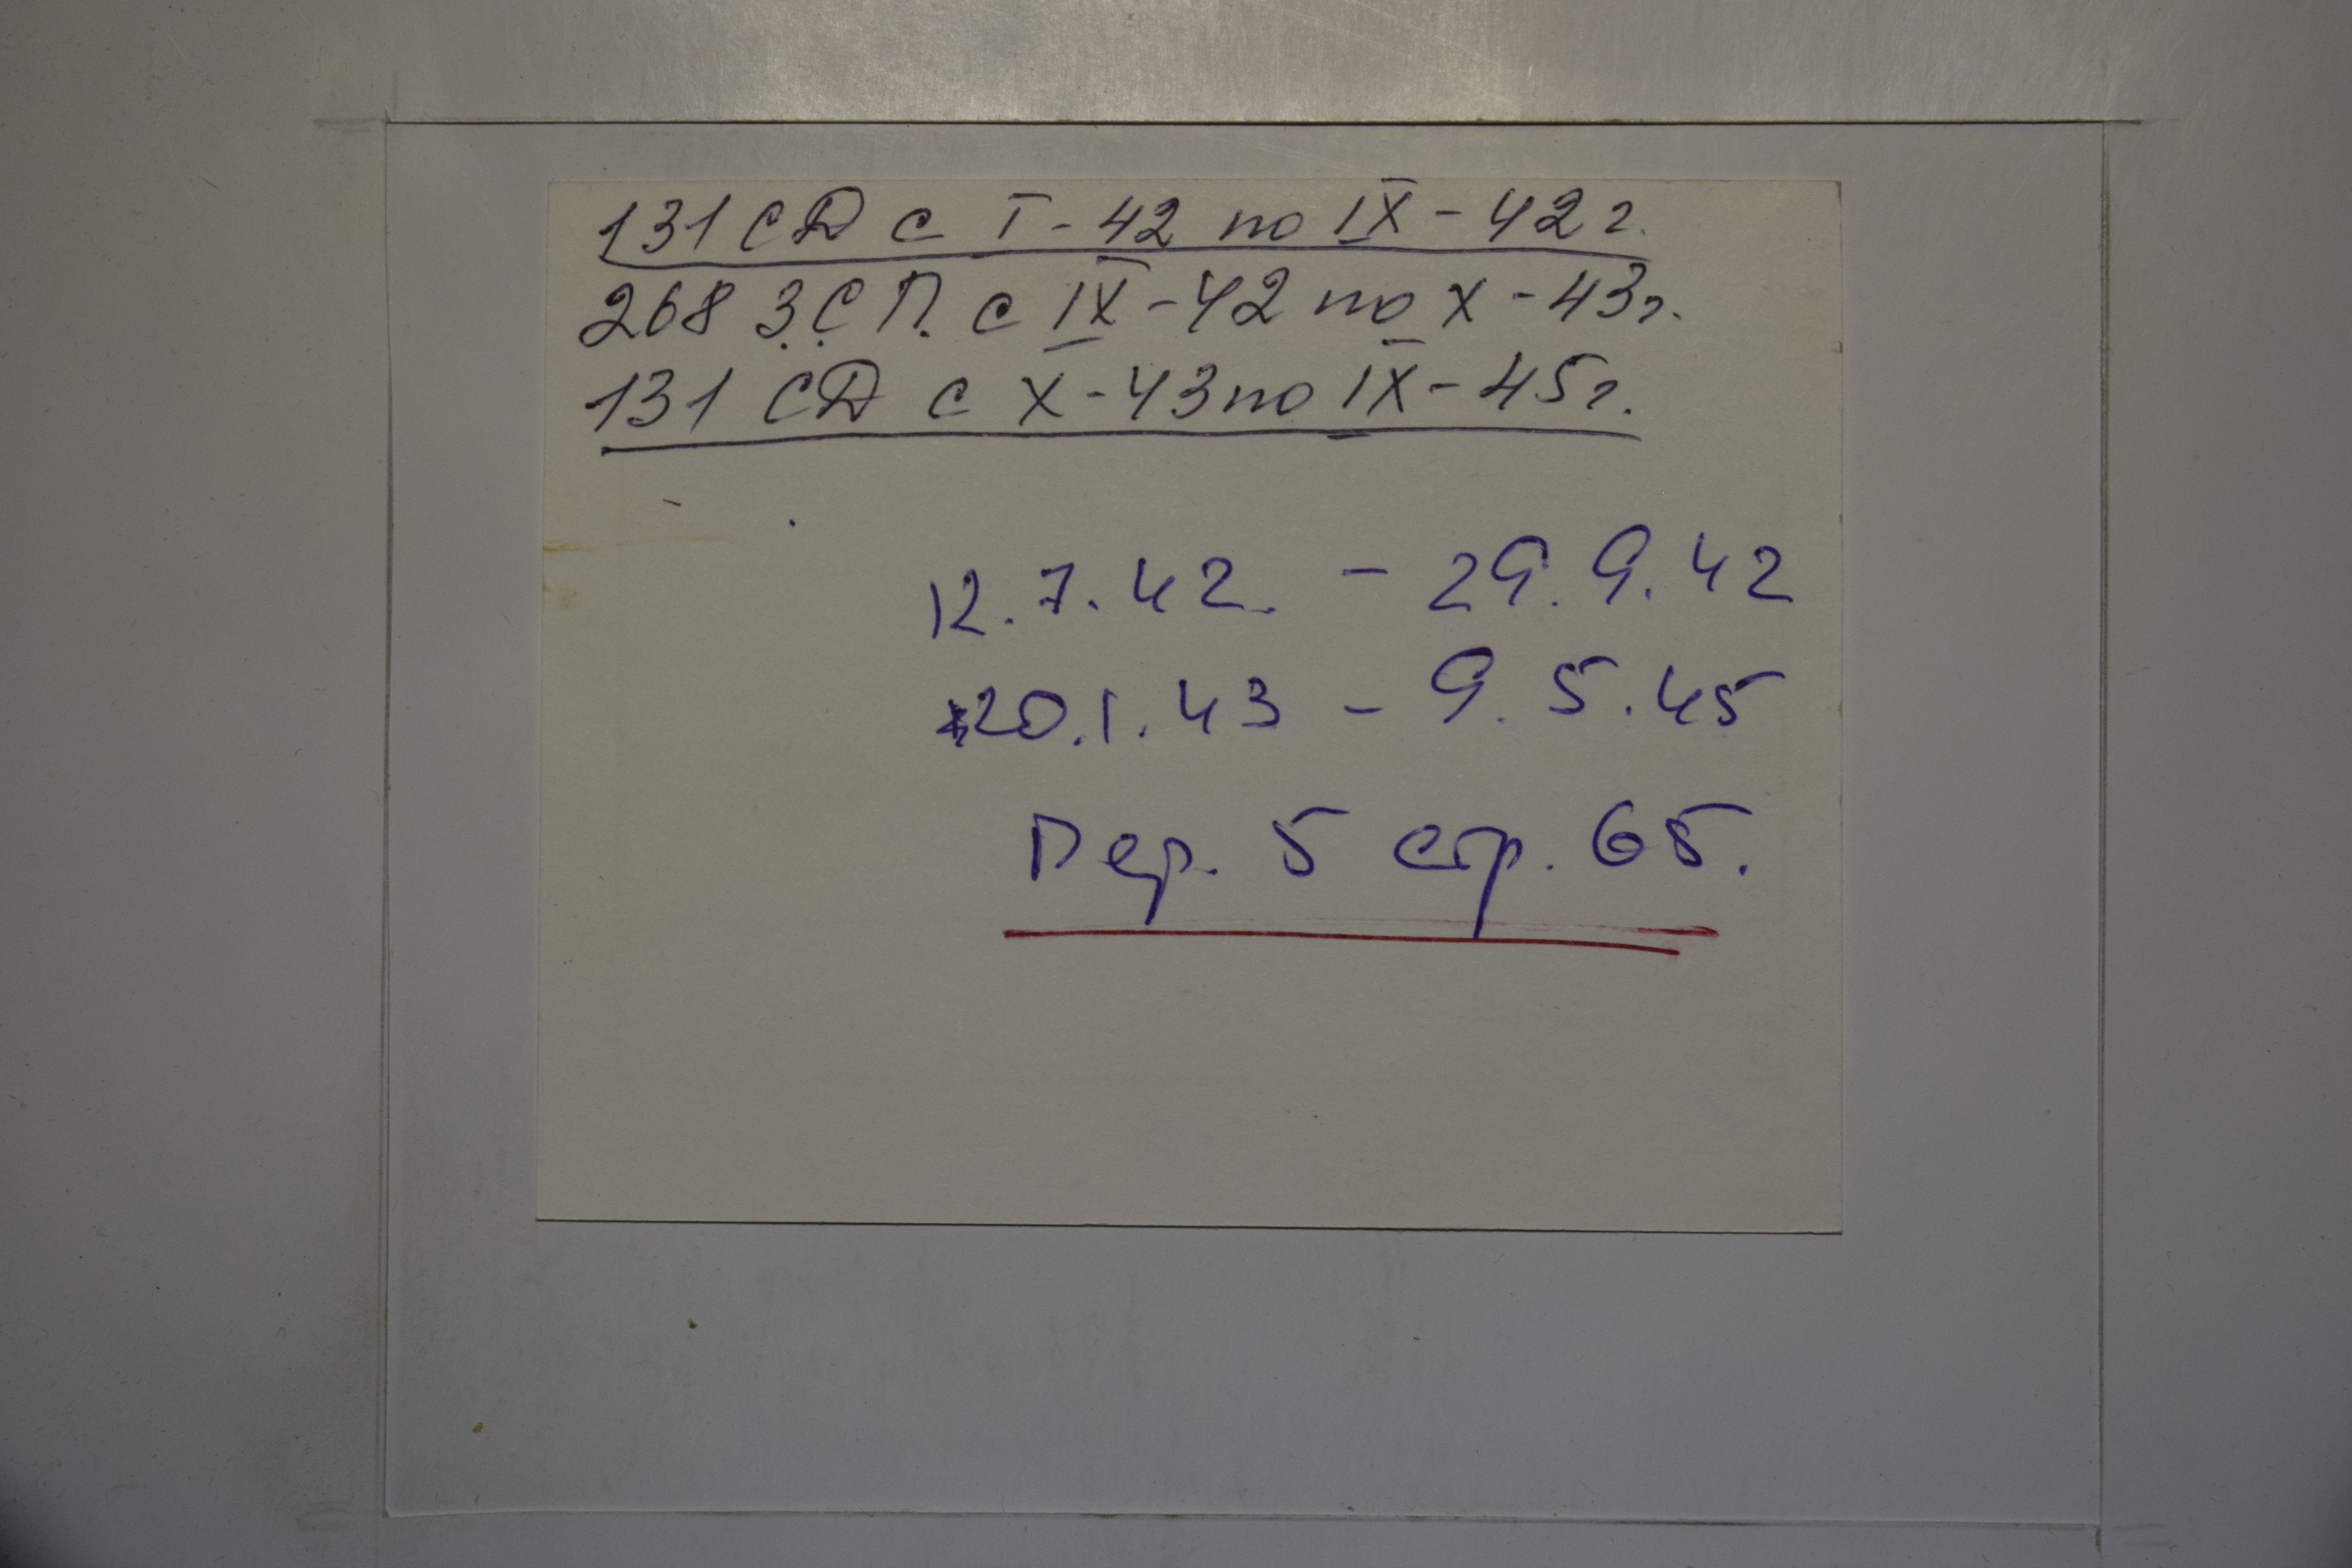 131 СД с I - 42 по IX - 42 г.
268 З.С.П. с IX - 42 по X - 43 г.
131 СД с X - 43 по IX - 45 г.
12.7.42. - 29.9.42
20.1.43 - 9.5.45
Пер. 5 стр. 65.